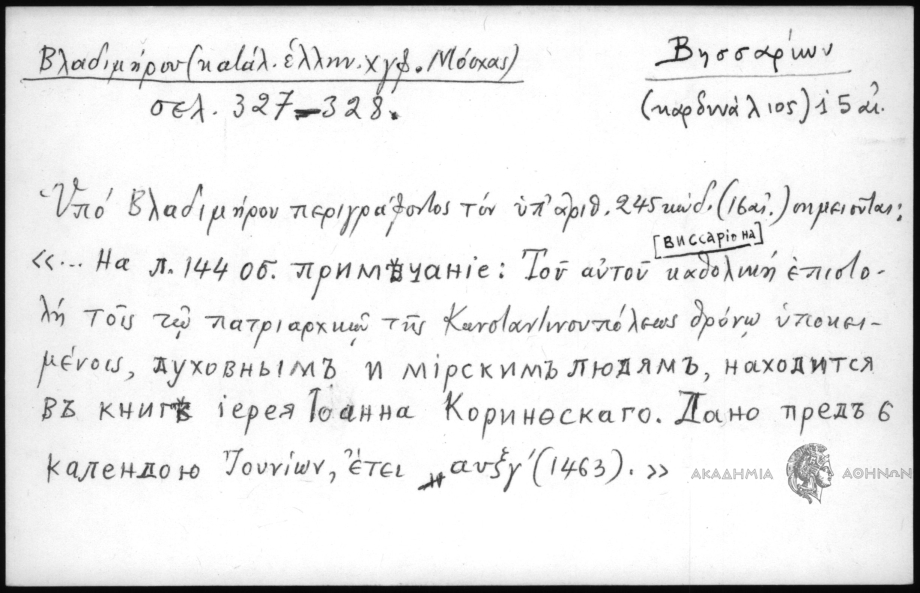 Βλαδιμήρου (κατάλ. ἑλλην. χγφ. Μόσχας)
σελ. 327-328.
Βησσαρίων
(καρδινάλιος) 15 αἰ.
Ὑπό Βλαδιμήρου περιγράφοντος τόν ὑπ' ἀριθ. 245 κώδ. (16 αἰ.) σημειοῦται:
[виссаріона]
«... На л. 144 об. примѣчаніе: Τοῦ αὐτοῦ καθολική ἐπιστο-
λή τοῖς τῷ πατριαρχικῷ τῆς Κωνσταντινουπόλεως θρόνῳ ὑποκει-
μένοις, духовнымъ и мірскимъ людямъ, находится
въ книгѣ іерея Іоанна Коринѳскаго. Дано предъ 6
календою Ἰουνίων, ἔτει ͵αυξγ' (1463).»
ΑΚΑΔΗΜΙΑ ΑΘΗΝΩΝ